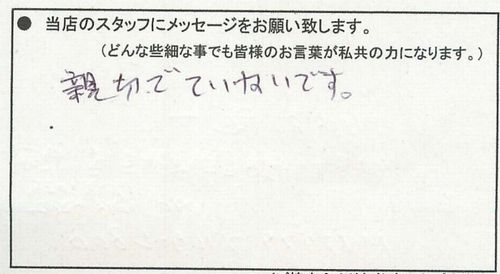 ● 当店のスタッフにメッセージをお願い致します。
（どんな些細な事でも皆様のお言葉が私共の力になります。）
親切でていねいです。